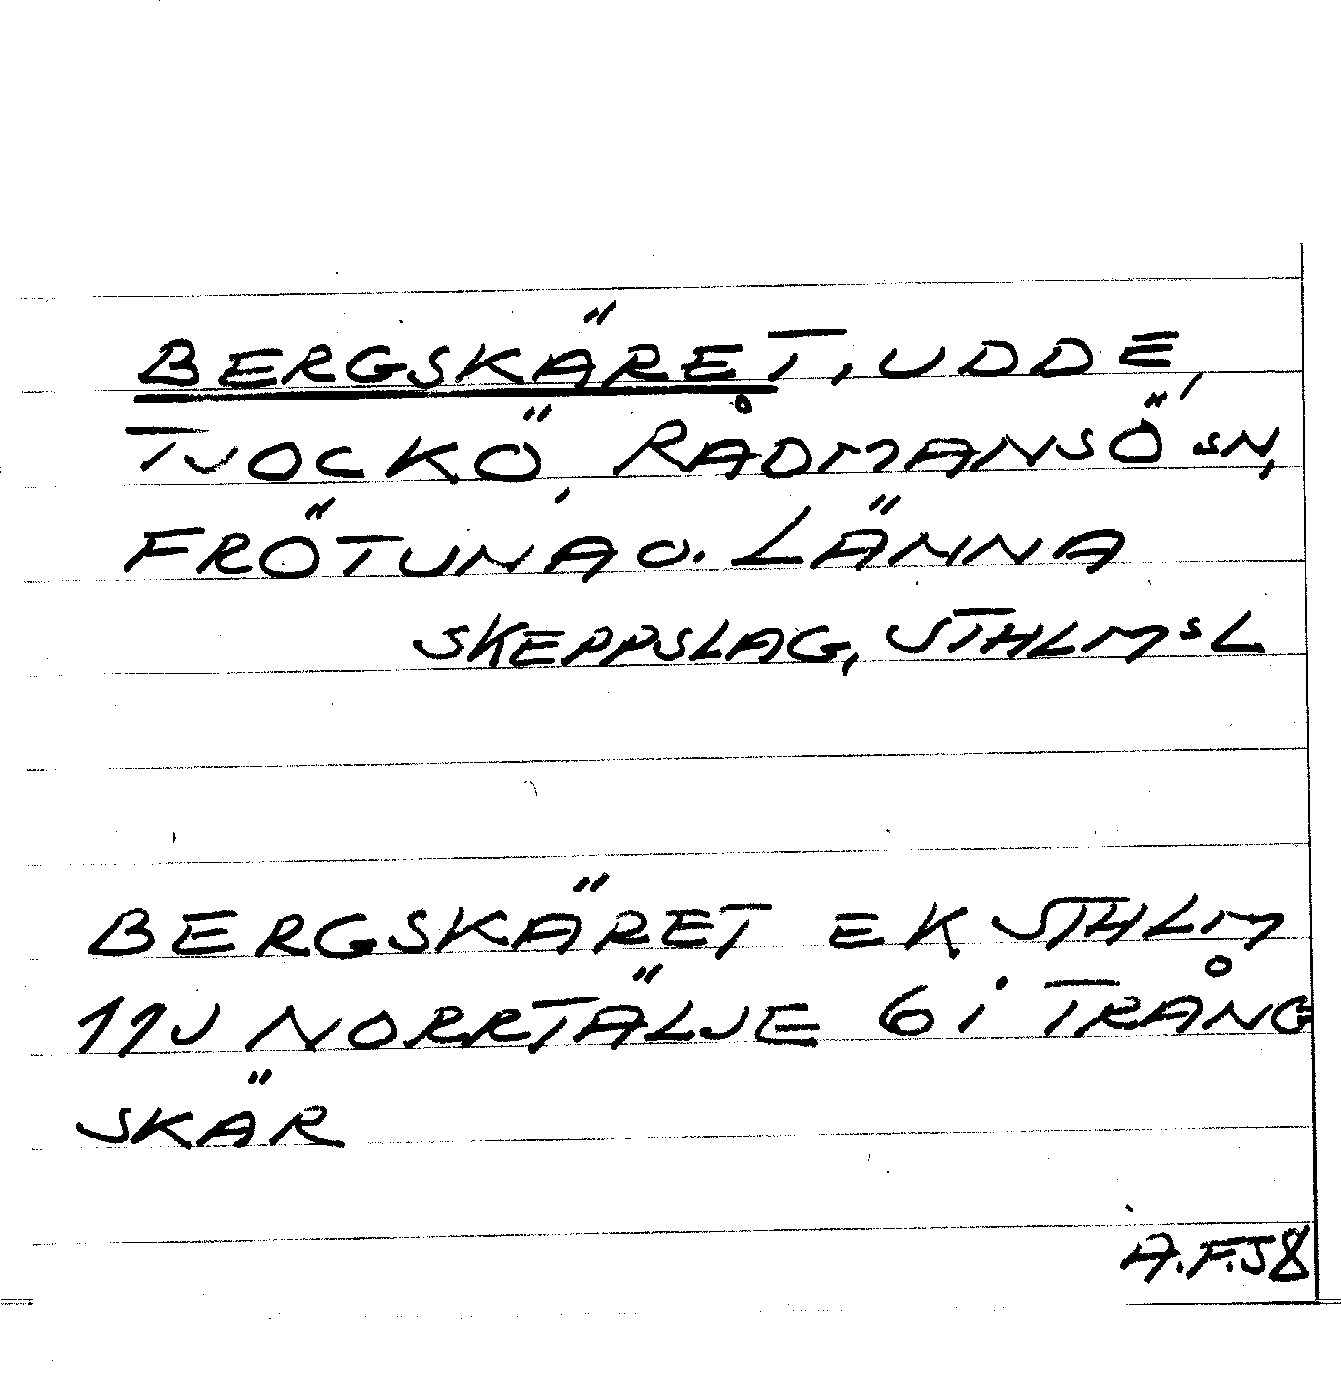 BERGSKÄRET, UDDE,
TJOCKÖ, RÅDMANSÖ SN,
FRÖTUNA O. LÄNNA
SKEPPSLAG, STHLMSL
BERGSKÄRET EK STHLM
11J NORRTÄLJE 6i TRÅNG
SKÄR
A.F.58